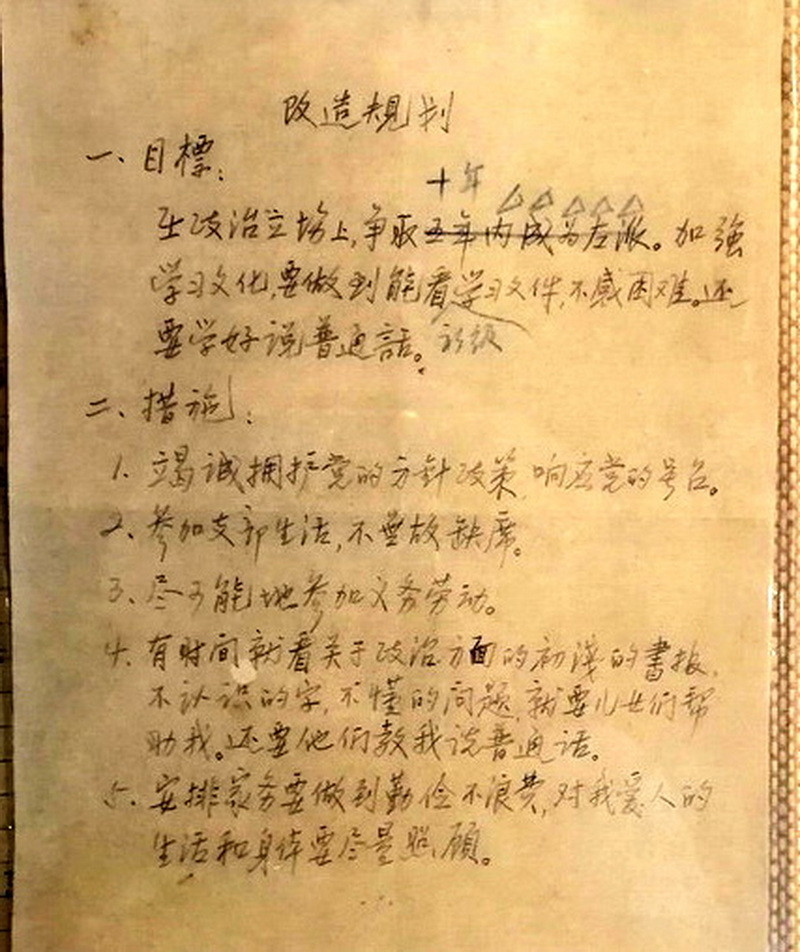 改造规划
一、目標：
十年
在政治立场上,争取五年内成为左派。加強
学习文化,要做到能看学习文件,不感困难。还
要学好说普通話。初级
二、措施：
1. 竭诚拥护党的方針政策,响应党的号召。
2. 参加支部生活,不無故缺席。
3. 尽可能地参加义务劳动。
4. 有时间就看关于政治方面的初淺的書报,
不认识的字,不懂的问题,就要儿女们帮
助我。还要他们教我说普通话。
5. 安排家务要做到勤俭不浪费,对我爱人的
生活和身体要尽量照顾。